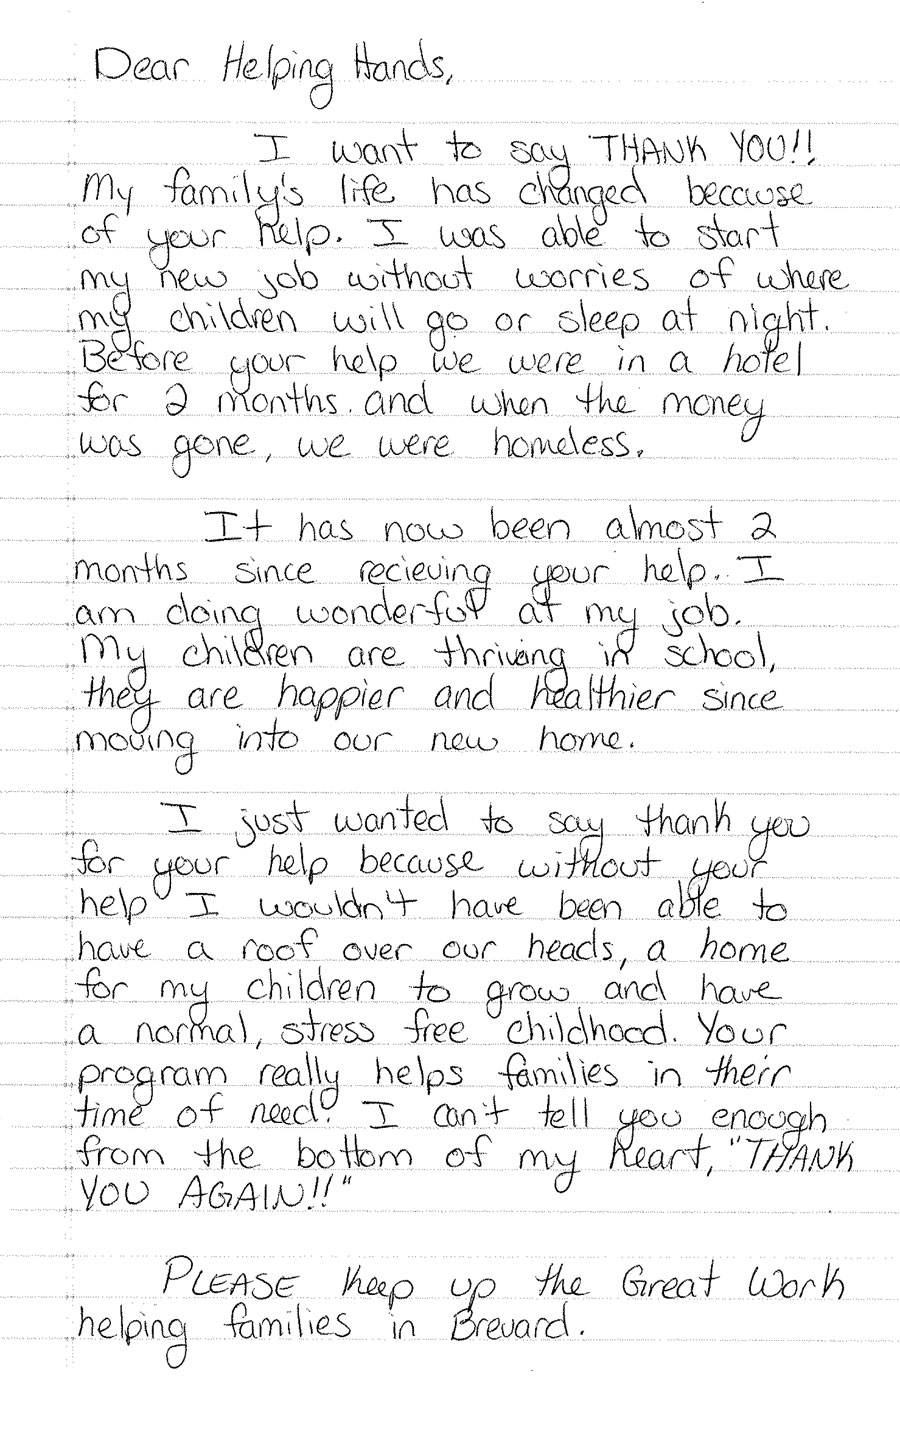 Dear Helping Hands,
I want to say THANK YOU!!
My family's life has changed because
of your help. I was able to start
my new job without worries of where
my children will go or sleep at night.
Before your help we were in a hotel
for 2 months. and when the money
was gone, we were homeless.
It has now been almost 2
months since recieving your help. I
am doing wonderful at my job.
My children are thriving in school,
they are happier and healthier since
moving into our new home.
I just wanted to say thank you
for your help because without your
help I wouldn't have been able to
have a roof over our heads, a home
for my children to grow and have
a normal, stress free childhood. Your
program really helps families in their
time of need! I can't tell you enough
from the bottom of my heart, "THANK
YOU AGAIN!!"
PLEASE Keep up the Great Work
helping families in Brevard.